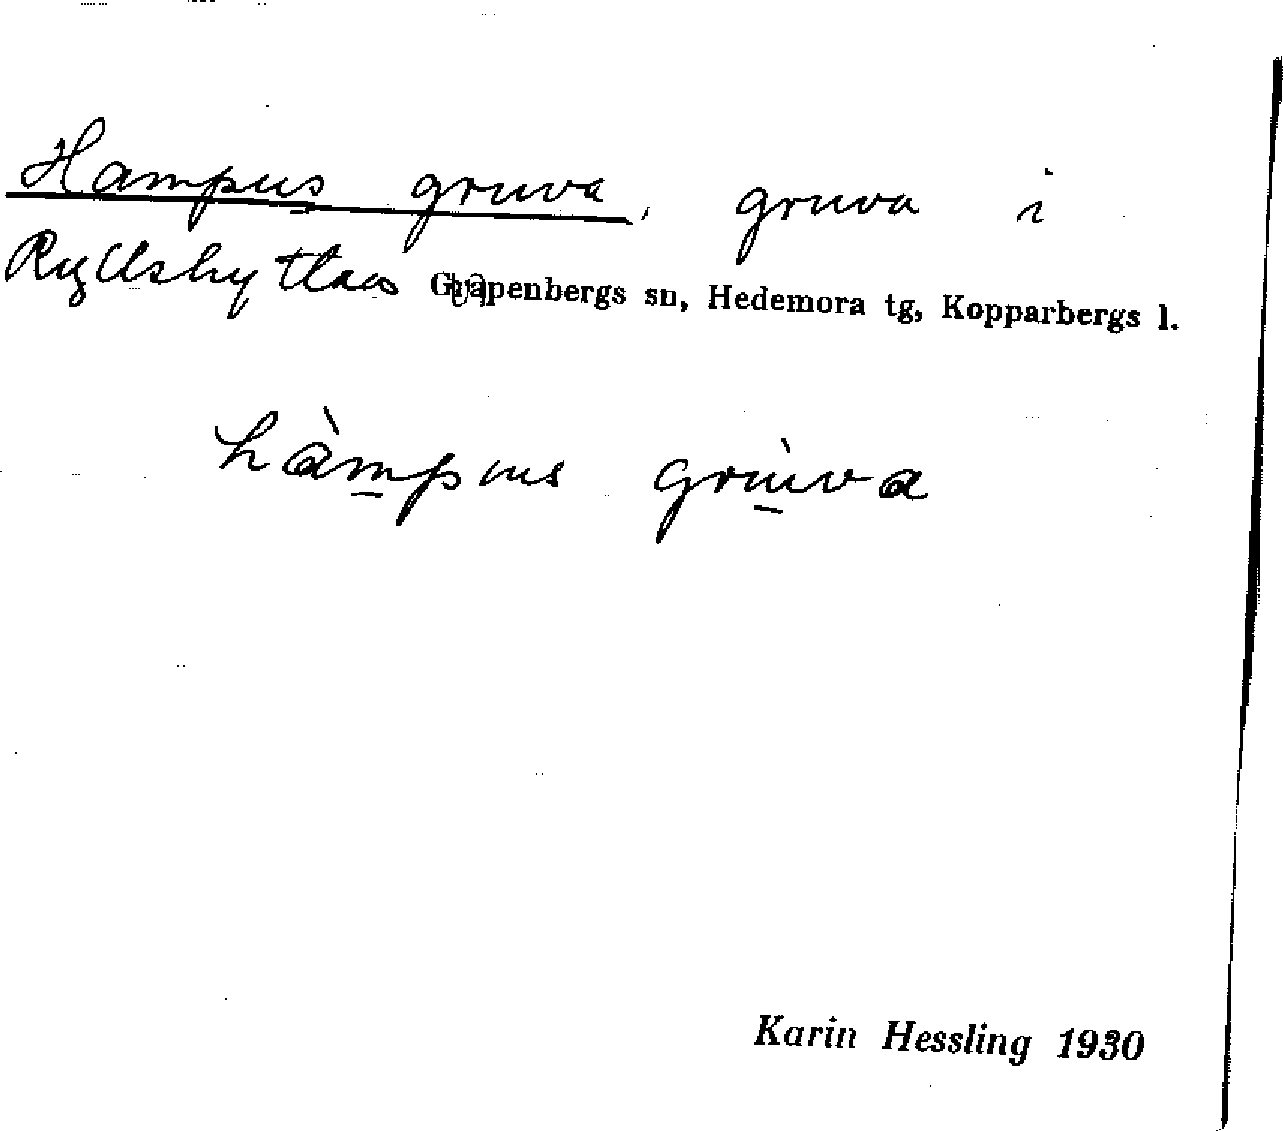 Hampus gruva, gruva i
Ryllshyttans by Garpenbergs sn, Hedemora tg, Kopparbergs l.
hàmpus grùva
Karin Hessling 1930